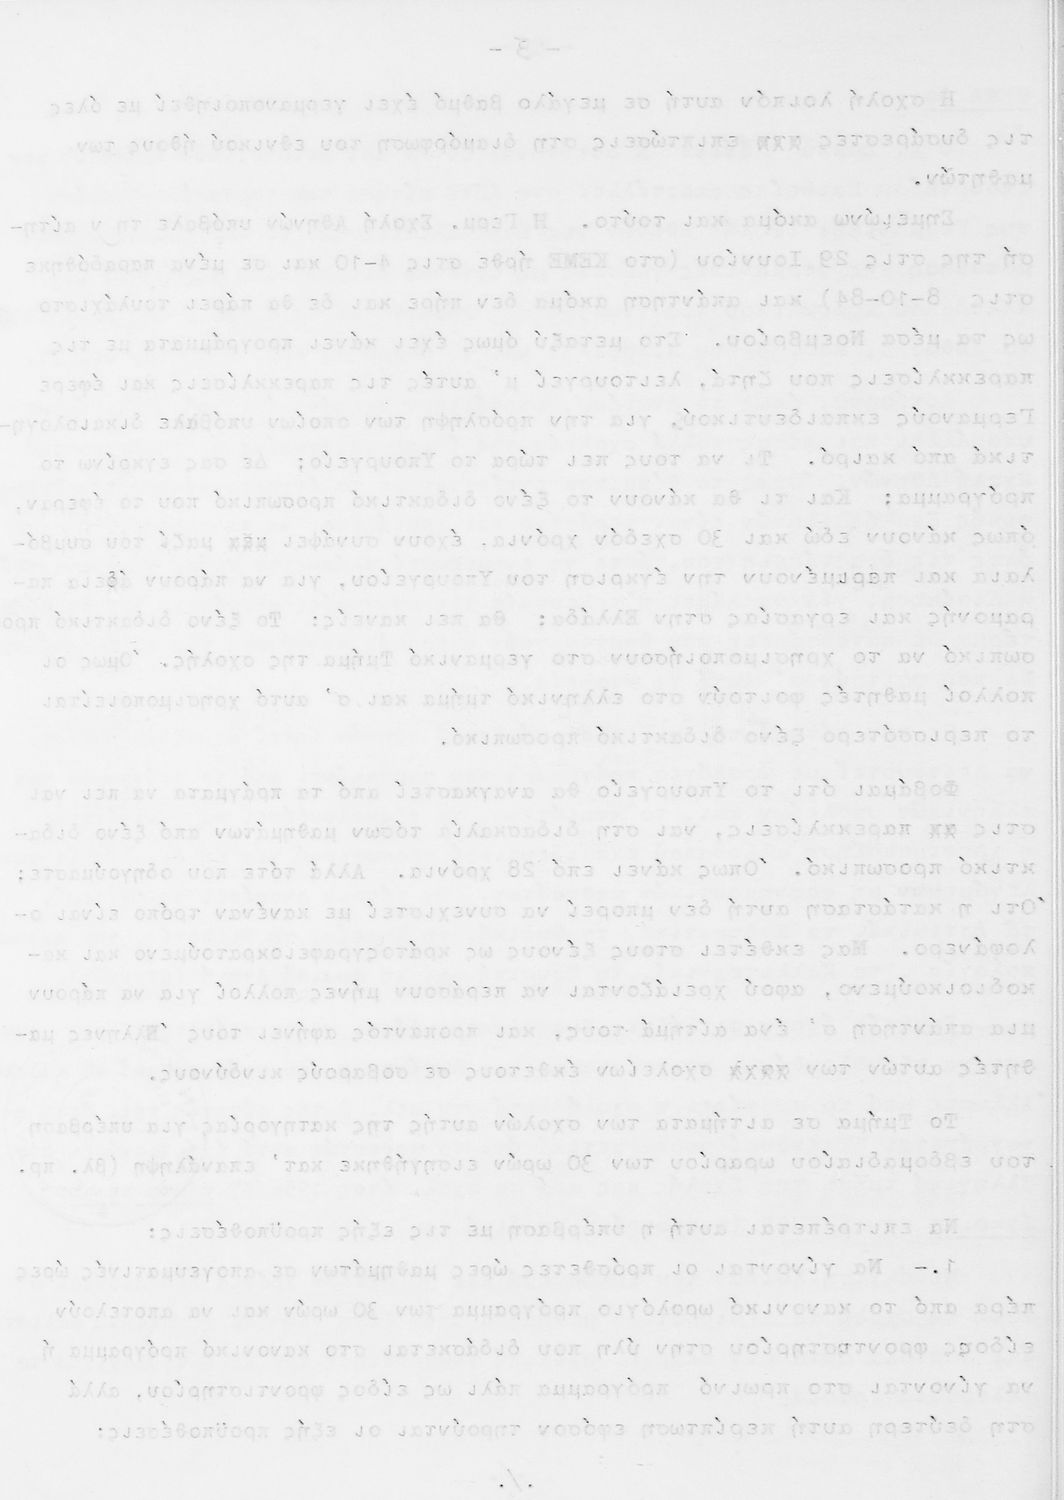 - 3 -
Η σχολή λοιπόν αυτή σε μεγάλο βαθμό έχει γερμανοποιηθεί με όλες
τις δυσάρεστες επιπτώσεις στη διαμόρφωση του εθνικού ήθους των
μαθητών.
Σημειώνω ακόμα και τούτο. Η Γερμ. Σχολή Αθηνών υπόβαλε τη ν αίτη-
σή της στις 29 Ιουνίου (στο ΚΕΜΕ ήρθε στις 4-10 και σε μένα παραδόθηκε
στις 8-10-84) και απάντηση ακόμα δεν πήρε και δε θα πάρει τουλάχιστο
ως τα μέσα Νοεμβρίου. Στο μεταξύ όμως έχει κάνει προγράμματα με τις
παρεκκλίσεις που ζητά, λειτουργεί μ' αυτές τις παρεκκλίσεις και έφερε
Γερμανούς εκπαιδευτικούς, για την πρόσληψη των οποίων υπόβαλε δικαιολογη-
τικά από καιρό. Τι να τους πει τώρα το Υπουργείο; Δε σας εγκρίνω το
πρόγραμμα; Και τι θα κάνουν το ξένο διδακτικό προσωπικό που το έφεραν,
όπως κάνουν εδώ και 30 σχεδόν χρόνια, έχουν συνάψει μαζί του συμβό-
λαια και περιμένουν την έγκριση του Υπουργείου, για να πάρουν άδεια πα-
ραμονής και εργασίας στην Ελλάδα; Θα πει κανείς: Το ξένο διδακτικό προ
σωπικό να το χρησιμοποιήσουν στο γερμανικό Τμήμα της σχολής. Όμως οι
πολλοί μαθητές φοιτούν στο ελληνικό τμήμα και σ' αυτό χρησιμοποιείται
το περισσότερο ξένο διδακτικό προσωπικό.
Φοβάμαι ότι το Υπουργείο θα αναγκαστεί από τα πράγματα να πει ναι
στις παρεκκλίσεις, ναι στη διδασκαλία τόσων μαθημάτων από ξένο διδα-
κτικό προσωπικό. Όπως κάνει επό 28 χρόνια. Αλλά τότε που οδηγούμαστε;
Ότι η κατάσταση αυτή δεν μπορεί να συνεχιστεί με κανέναν τρόπο είναι ο-
λοφάνερο. Μας εκθέτει στους ξένους ως κράτοςγραφειοκρατούμενο και κα-
κοδιοικούμενο, αφού χρειάζονται να περάσουν μήνες πολλοί για να πάρουν
μια απάντηση σ' ένα αίτημά τους, και προπαντός αφήνει τους Έλληνες μα-
θητές αυτών των σχολείων έκθετους σε σοβαρούς κινδύνους.
Το Τμήμα σε αιτήματα των σχολών αυτής της κατηγορίας για υπέρβαση
του εβδομαδιαίου ωραρίου των 30 ωρών εισηγήθηκε κατ' επανάληψη (βλ. πρ.
Να επιτρέπεται αυτή η υπέρβαση με τις εξής προϋποθέσεις:
1.- Να γίνονται οι πρόσθετες ώρες μαθημάτων σε απογευματινές ώρες
πέρα από το κανονικό ωρολόγιο πρόγραμμα των 30 ωρών και να αποτελούν
είδος φροντιστηρίου στην ύλη που διδάσκεται στο κανονικό πρόγραμμα ή
να γίνονται στο πρωινό πρόγραμμα πάλι ως είδος φροντιστηρίου, αλλά
στη δεύτερη αυτή περίπτωση εφόσον τηρούνται οι εξής προϋποθέσεις:
./.